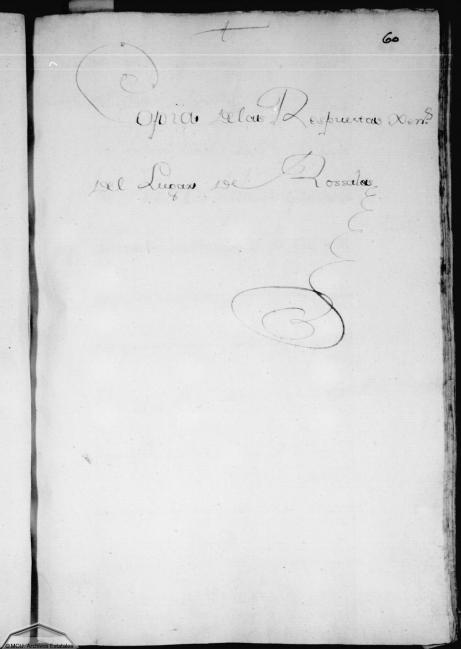 60
Copia de las Respuestas Xen.s
del Lugar de Rossales
© MCU. Archivos Estatales